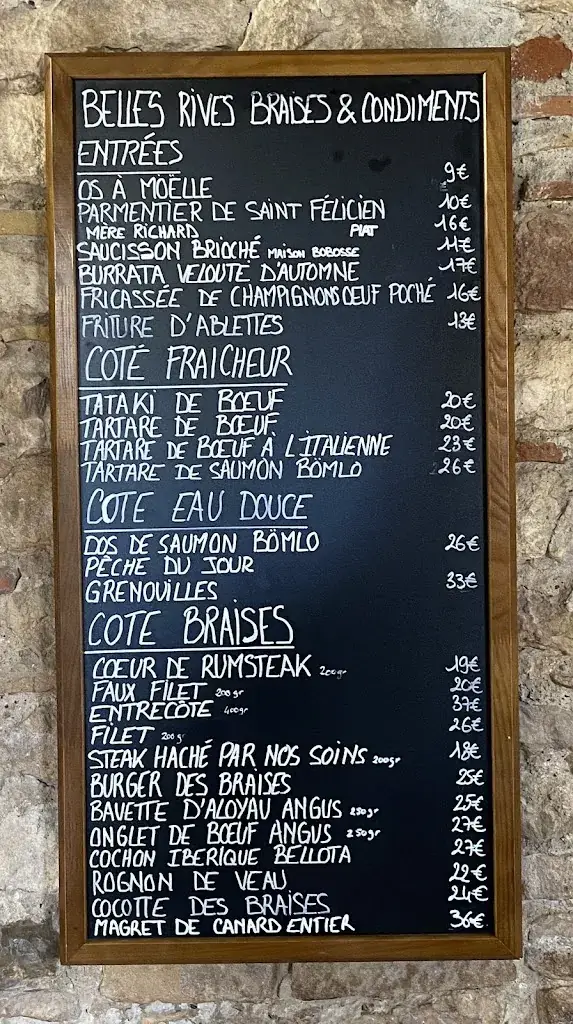 BELLES RIVES BRAISES & CONDIMENTS
ENTRÉES
OS À MÖELLE 9€
PARMENTIER DE SAINT FÉLICIEN 10€
MÈRE RICHARD PLAT 16€
SAUCISSON BRIOCHÉ MAISON BOBOSSE 11€
BURRATA VELOUTÉ D'AUTOMNE 17€
FRICASSÉE DE CHAMPIGNONS OEUF POCHÉ 16€
FRITURE D'ABLETTES 13€
COTÉ FRAICHEUR
TATAKI DE BOEUF 20€
TARTARE DE BOEUF 20€
TARTARE DE BOEUF À L'ITALIENNE 23€
TARTARE DE SAUMON BÖMLO 26€
COTE EAU DOUCE
DOS DE SAUMON BÖMLO 26€
PÈCHE DU JOUR
GRENOUILLES 33€
COTE BRAISES
COEUR DE RUMSTEAK 200gr 19€
FAUX FILET 200gr 20€
ENTRECÔTE 400gr 37€
FILET 200g 26€
STEAK HACHÉ PAR NOS SOINS 200gr 18€
BURGER DES BRAISES 25€
BAVETTE D'ALOYAU ANGUS 250gr 25€
ONGLET DE BOEUF ANGUS 250gr 27€
COCHON IBERIQUE BELLOTA 27€
ROGNON DE VEAU 22€
COCOTTE DES BRAISES 24€
MAGRET DE CANARD ENTIER 36€